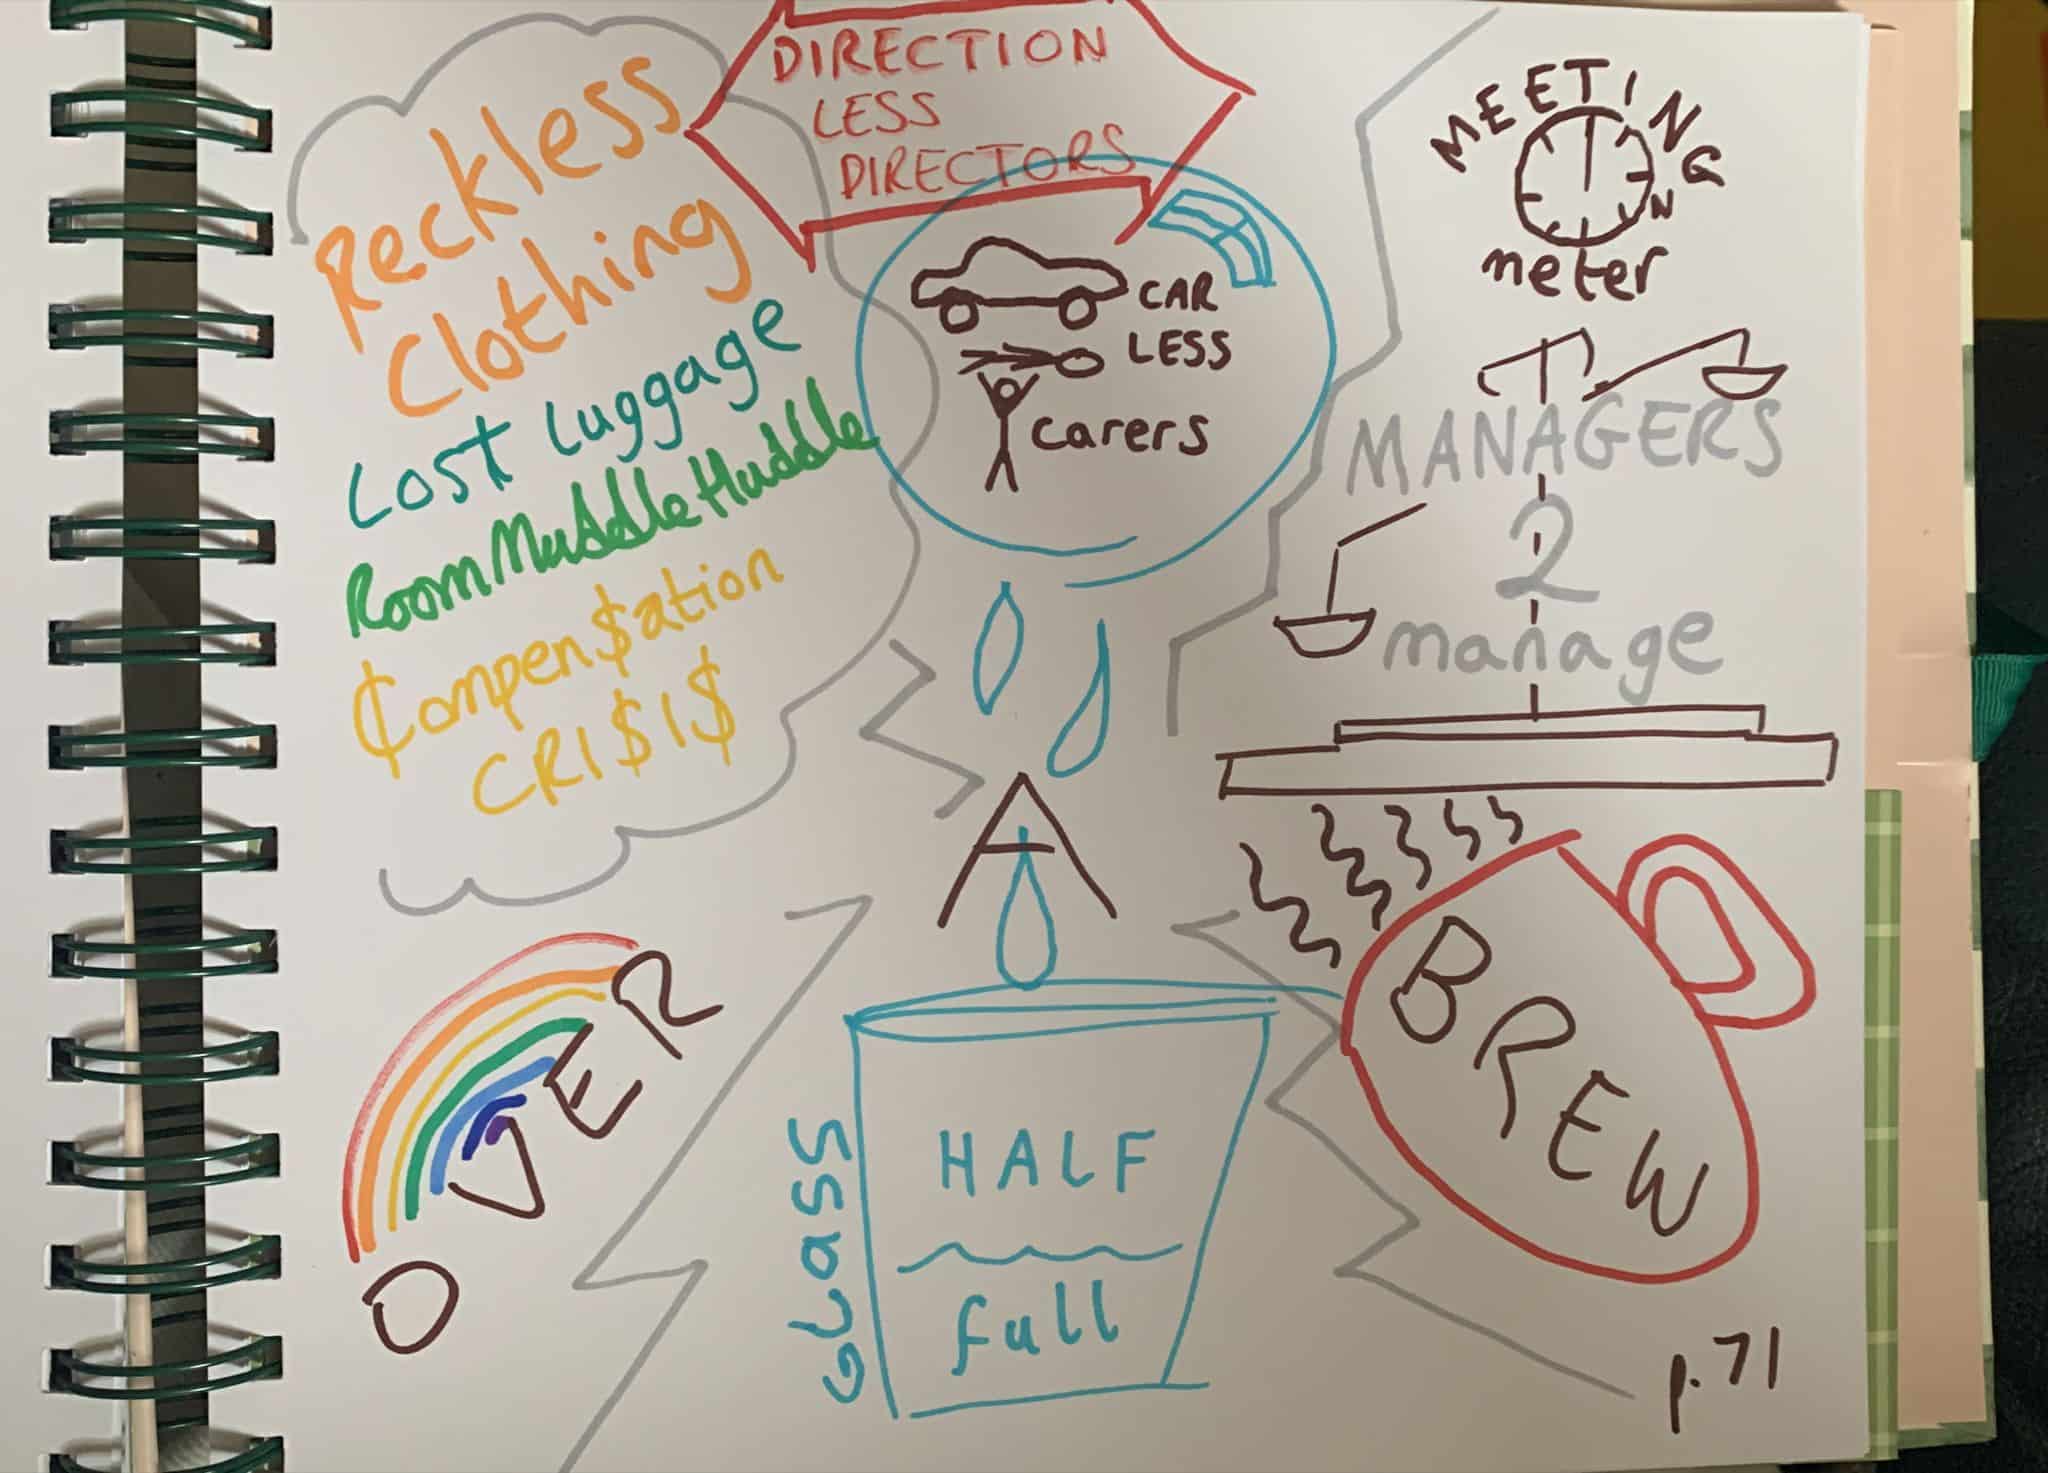 DIRECTION
LESS
DIRECTORS
Reckless
Clothing
Lost Luggage
RoomMuddleHuddle
₵ompen$ation
CRI$I$
CAR
LESS
carers
MEETING
N
meter
MANAGERS
2
manage
A
OVER
BREW
GLASS
HALF
full
p.71